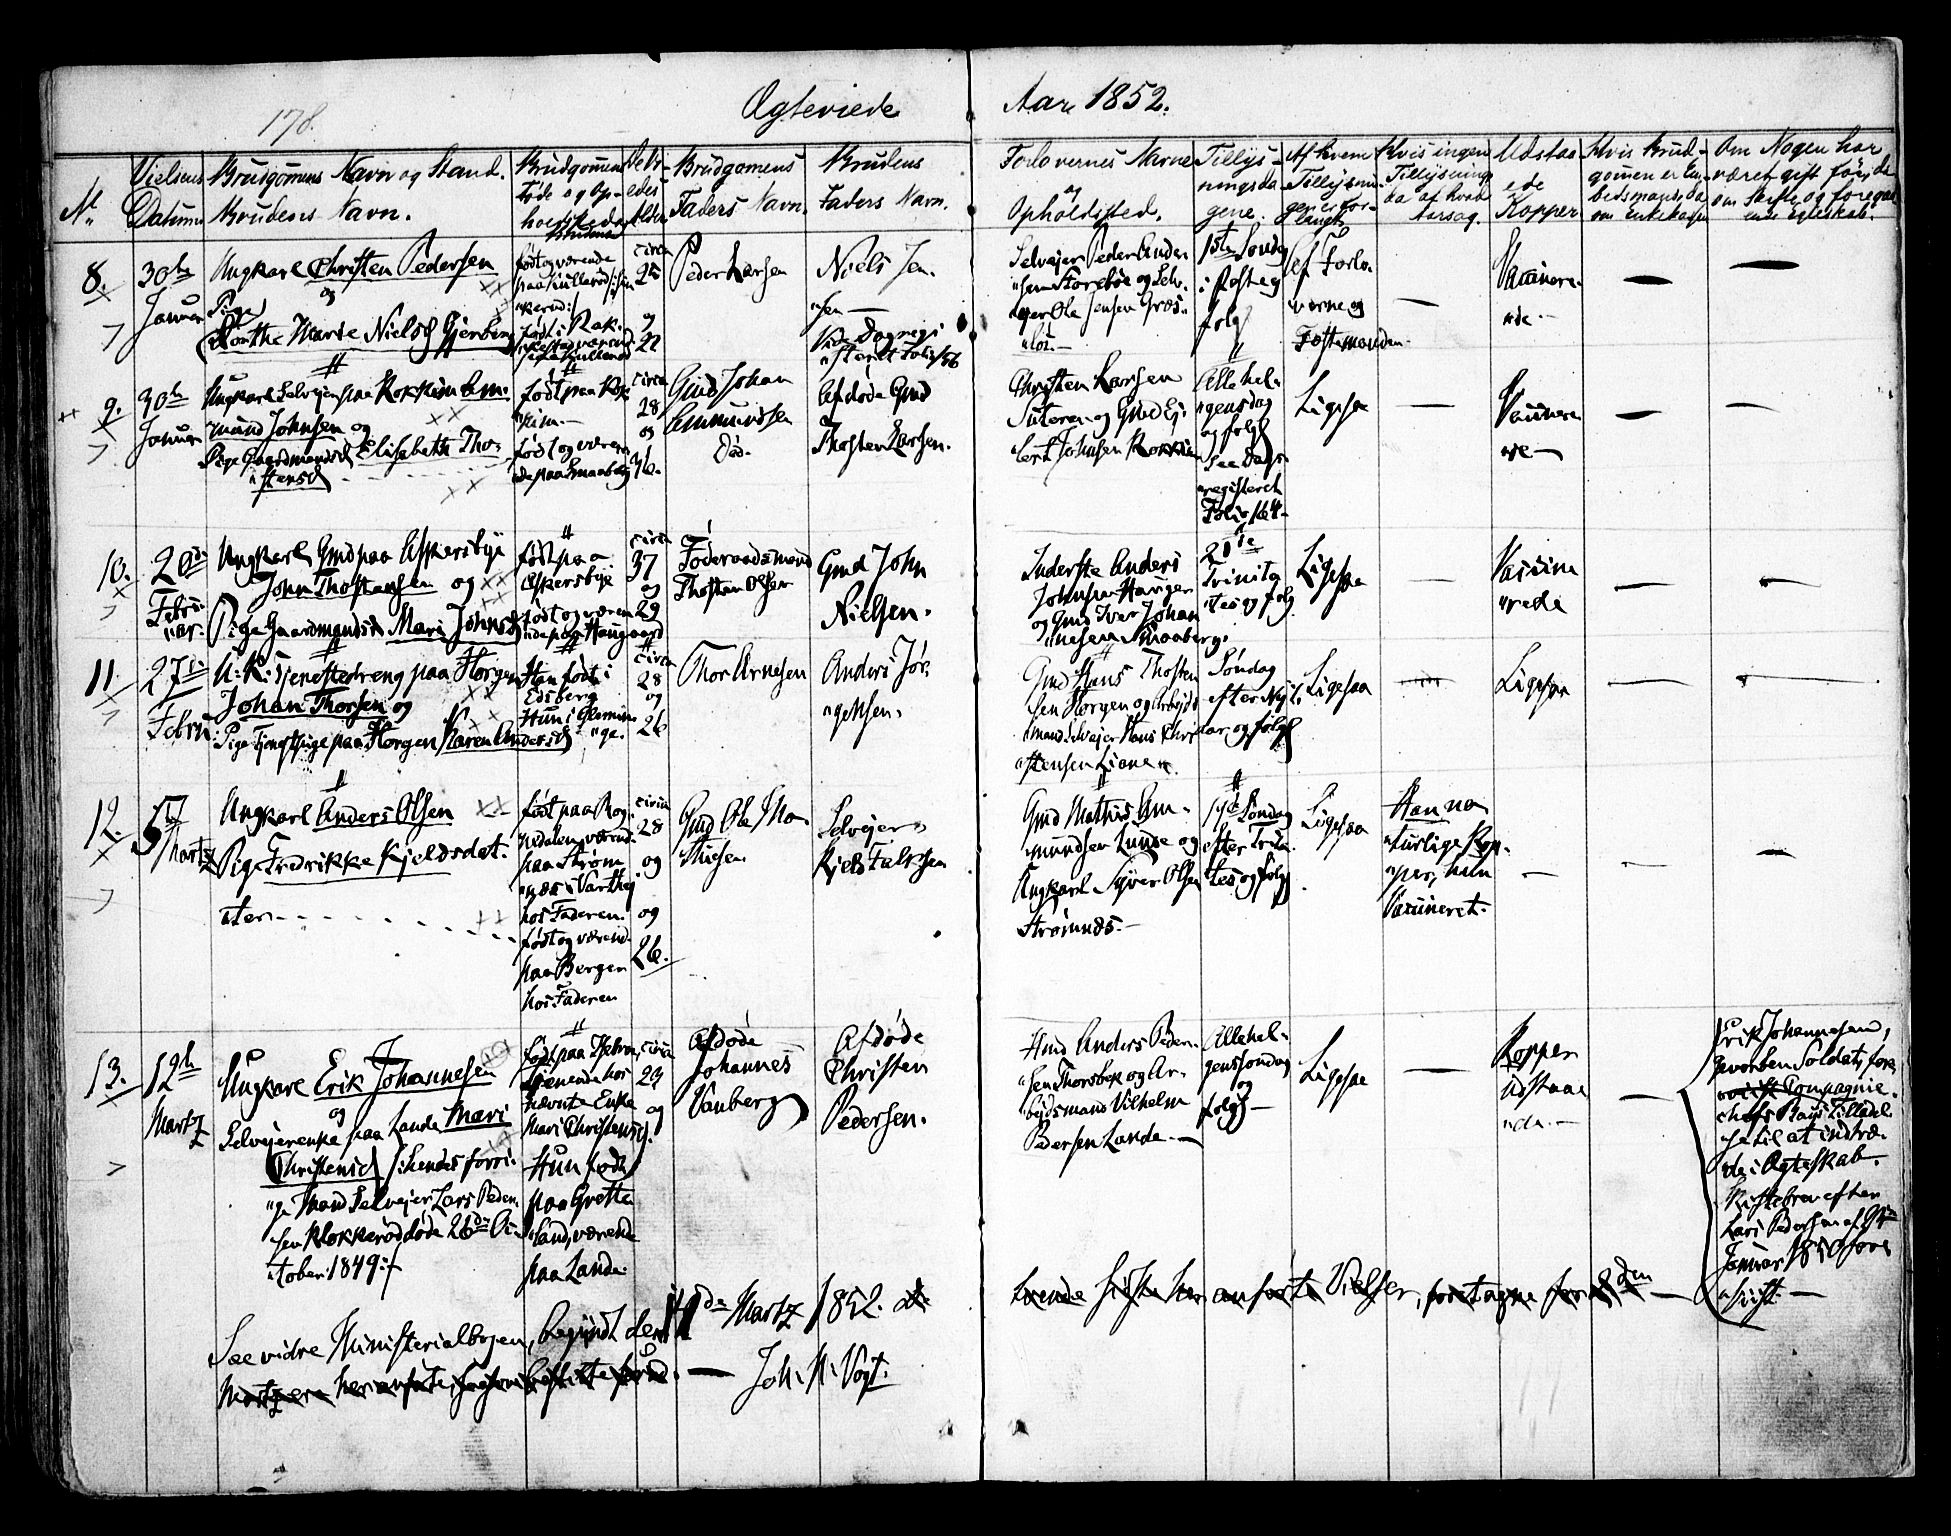 178.
Ægteviede
Aar 1852.
No
Vielsens Datum
Brudgomens Navn og Stand.
Brudens Navn.
Brudgomens Føde og Op-
holdssted og
Brudens
Alder
Brudgomens
Faders Navn.
Brudens
Faders Navn.
Forlovernes Navne
og
Opholdssted.
Tillys-
ningsda-
gene.
Af hvem
Tillysnin-
gen er for-
langt
Hvis ingen
Tillysning
da af hvad
Aarsag.
Udstaa-
ede
Kopper
Hvis Brud-
gomen er
om Enkekasse
Om Nogen har
været gift før, da
om Skifte og foregaa-
ende Egteskab.
8.
30te
Januar
Ungkarl Christen Pedersen
og
Pige
Dorthe Marie Nielsd Gjerberg
født og værende
paa
født i Rak-
circa
25
og
22
Peder Larsen
Niels Jen-
"sen —
Vide Dagregi-
"steret Folio 156
Selvejer Peder Ander-
"sen Storebøe og Selv-
"ejer Ole Jensen Græs-
"løs. —
1ste Søndag
i Faste og
følg
af Forlo-
verne og
Fæstemanden.
—
Vaccinere-
"de. —
—
—
9.
30te
Januar
Ungkarl Selvejer paa Kokkim Am-
"mund Johnsen og
Pige Gaardmandsd Elisabeth Tho-
"stensd
født paa Kok-
"kim. —
født og væren-
de paa Smaaberg
circa
28
og
36.
Gmd Johan
Ammundsen
Død.
Afdøde Gmd
Thosten Larsen.
Christen Larsen
Sutoren og Gmd Ej-
"lert Johnsen Kokkim
Allehel-
"gensdag
og følg
See Dags-
"registeret
Folio 164.
Ligesaa
—
Vaccinere-
"de —
—
—
10.
20de
Febru-
"ar.
Ungkarl Gmd paa Askersbye
John Thostensen og
Pige Gaardmandsd Mari Johnsd
født paa
Askersbye
født og væren-
de paa Haugaard
circa
37
og
29
Føderaadsmand
Thosten Olsen
Gmd John
Nielsen.
Inderste Anders
Johnsen Haugen
og Gmd Iver Johan-
"nesen Smaaberg.
21de
Trinita-
"tes og følg
Ligesaa
—
Vaccine-
"rede
—
—
11.
27de
Febru:
U: K: Tjenestedreng paa Horgen
Johan Thorsen og
Pige Tjenestpige paa Horgen Karen Andersd
Han født i
Edsberg
Hun i Glemmin-
"ge.
circa
28
og
26
Thor Arnesen
Anders Jør-
"gensen.
Gmd Hans Thosten-
sen Horgen og Arbejds-
mand Selvejer Hans Chri-
"stensen Liane.
Søndag
efter Nyt-
aar og følg
Ligesaa
—
Ligesaa
—
—
12.
5te
Martz
Ungkarl Anders Olsen
Pige Fredrikke Kjeldsdat-
"ter.
født paa Rog-
nedalen, værende
paa Strøm-
"næs i Varteig
hos Faderen.
født og værend-
paa Bergen
hos Faderen
circa
28
og
26.
Gmd Ole Tho-
Selvejer
Kjeld Falksen
Gmd Mathis Am-
mundsen Lunde og
Ungkarl Syver Olsen
Strømnæs. —
19de Søndag
efter Trini-
tes og følg
Ligesaa
Han na-
"turlige Kop-
"per, hun
Vaccineret.
—
—
—
13.
12te
Martz
Ungkarl Erik Johannesen
og
Selvejerenke paa Lande Mari
Christensd /: hendes forri-
"ge Mand Selvejer Lars Peder-
sen Klokkerød døde 26de Oc-
"tober 1849 :/
tjenende hos
nævnte Enke
Mari Christensd.
Hun født
paa Grotte-
"land, værende
paa Lande.
circa
23
og
Afdøde
Johannes
Vanberg
Afdøde
Christen
Pedersen.
Hmd Anders Peder-
"sen Thorsbek og Ar-
bejdsmand Vilhelm
Pedersen Lande. —
Allehel-
genssøndag
og
følg —
Ligesaa
—
Kopper
udstaae-
"de. —
—
Erik Johannesen,
gevorben Soldat, fore-
"viist Compagnie-
chefs Tilladel-
se til at indtræ-
"de i Ægteskab.
Skiftebrev efter
Lars Pedersen af 9de
Januar 1850 fore-
"viist. —
See vidre Ministerialbogen, begyndt den 11de Martz 1852.
— Joh. N. Vogt.